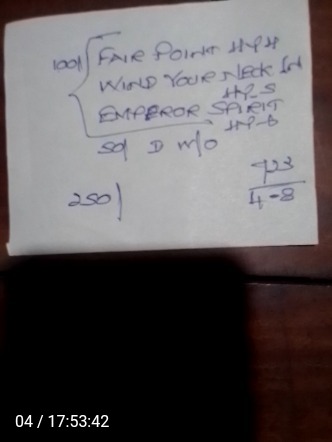 100/ FAIR POINT HYH
WIND YOUR NECK IN
HY-S
EMPEROR SPIRIT
HY-B
50/ D W/O
250/
723
4-8
04 / 17:53:42